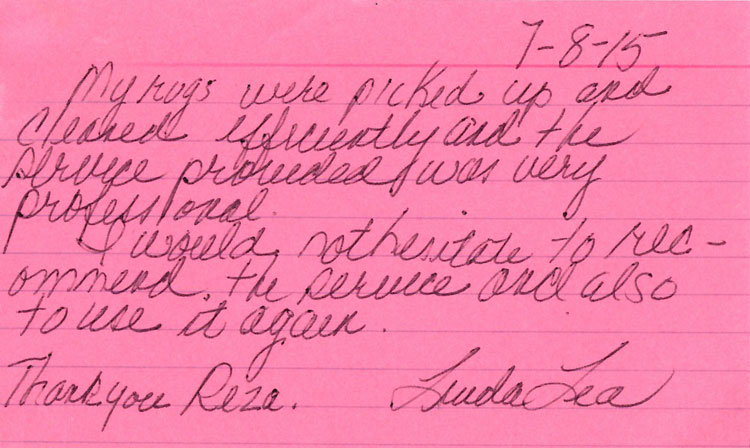 7-8-15
My rugs were picked up and
cleaned efficiently and the
service provided was very
professional.
I would not hesitate to rec-
ommend the service and also
to use it again.
Thank you Reza. Linda Lea